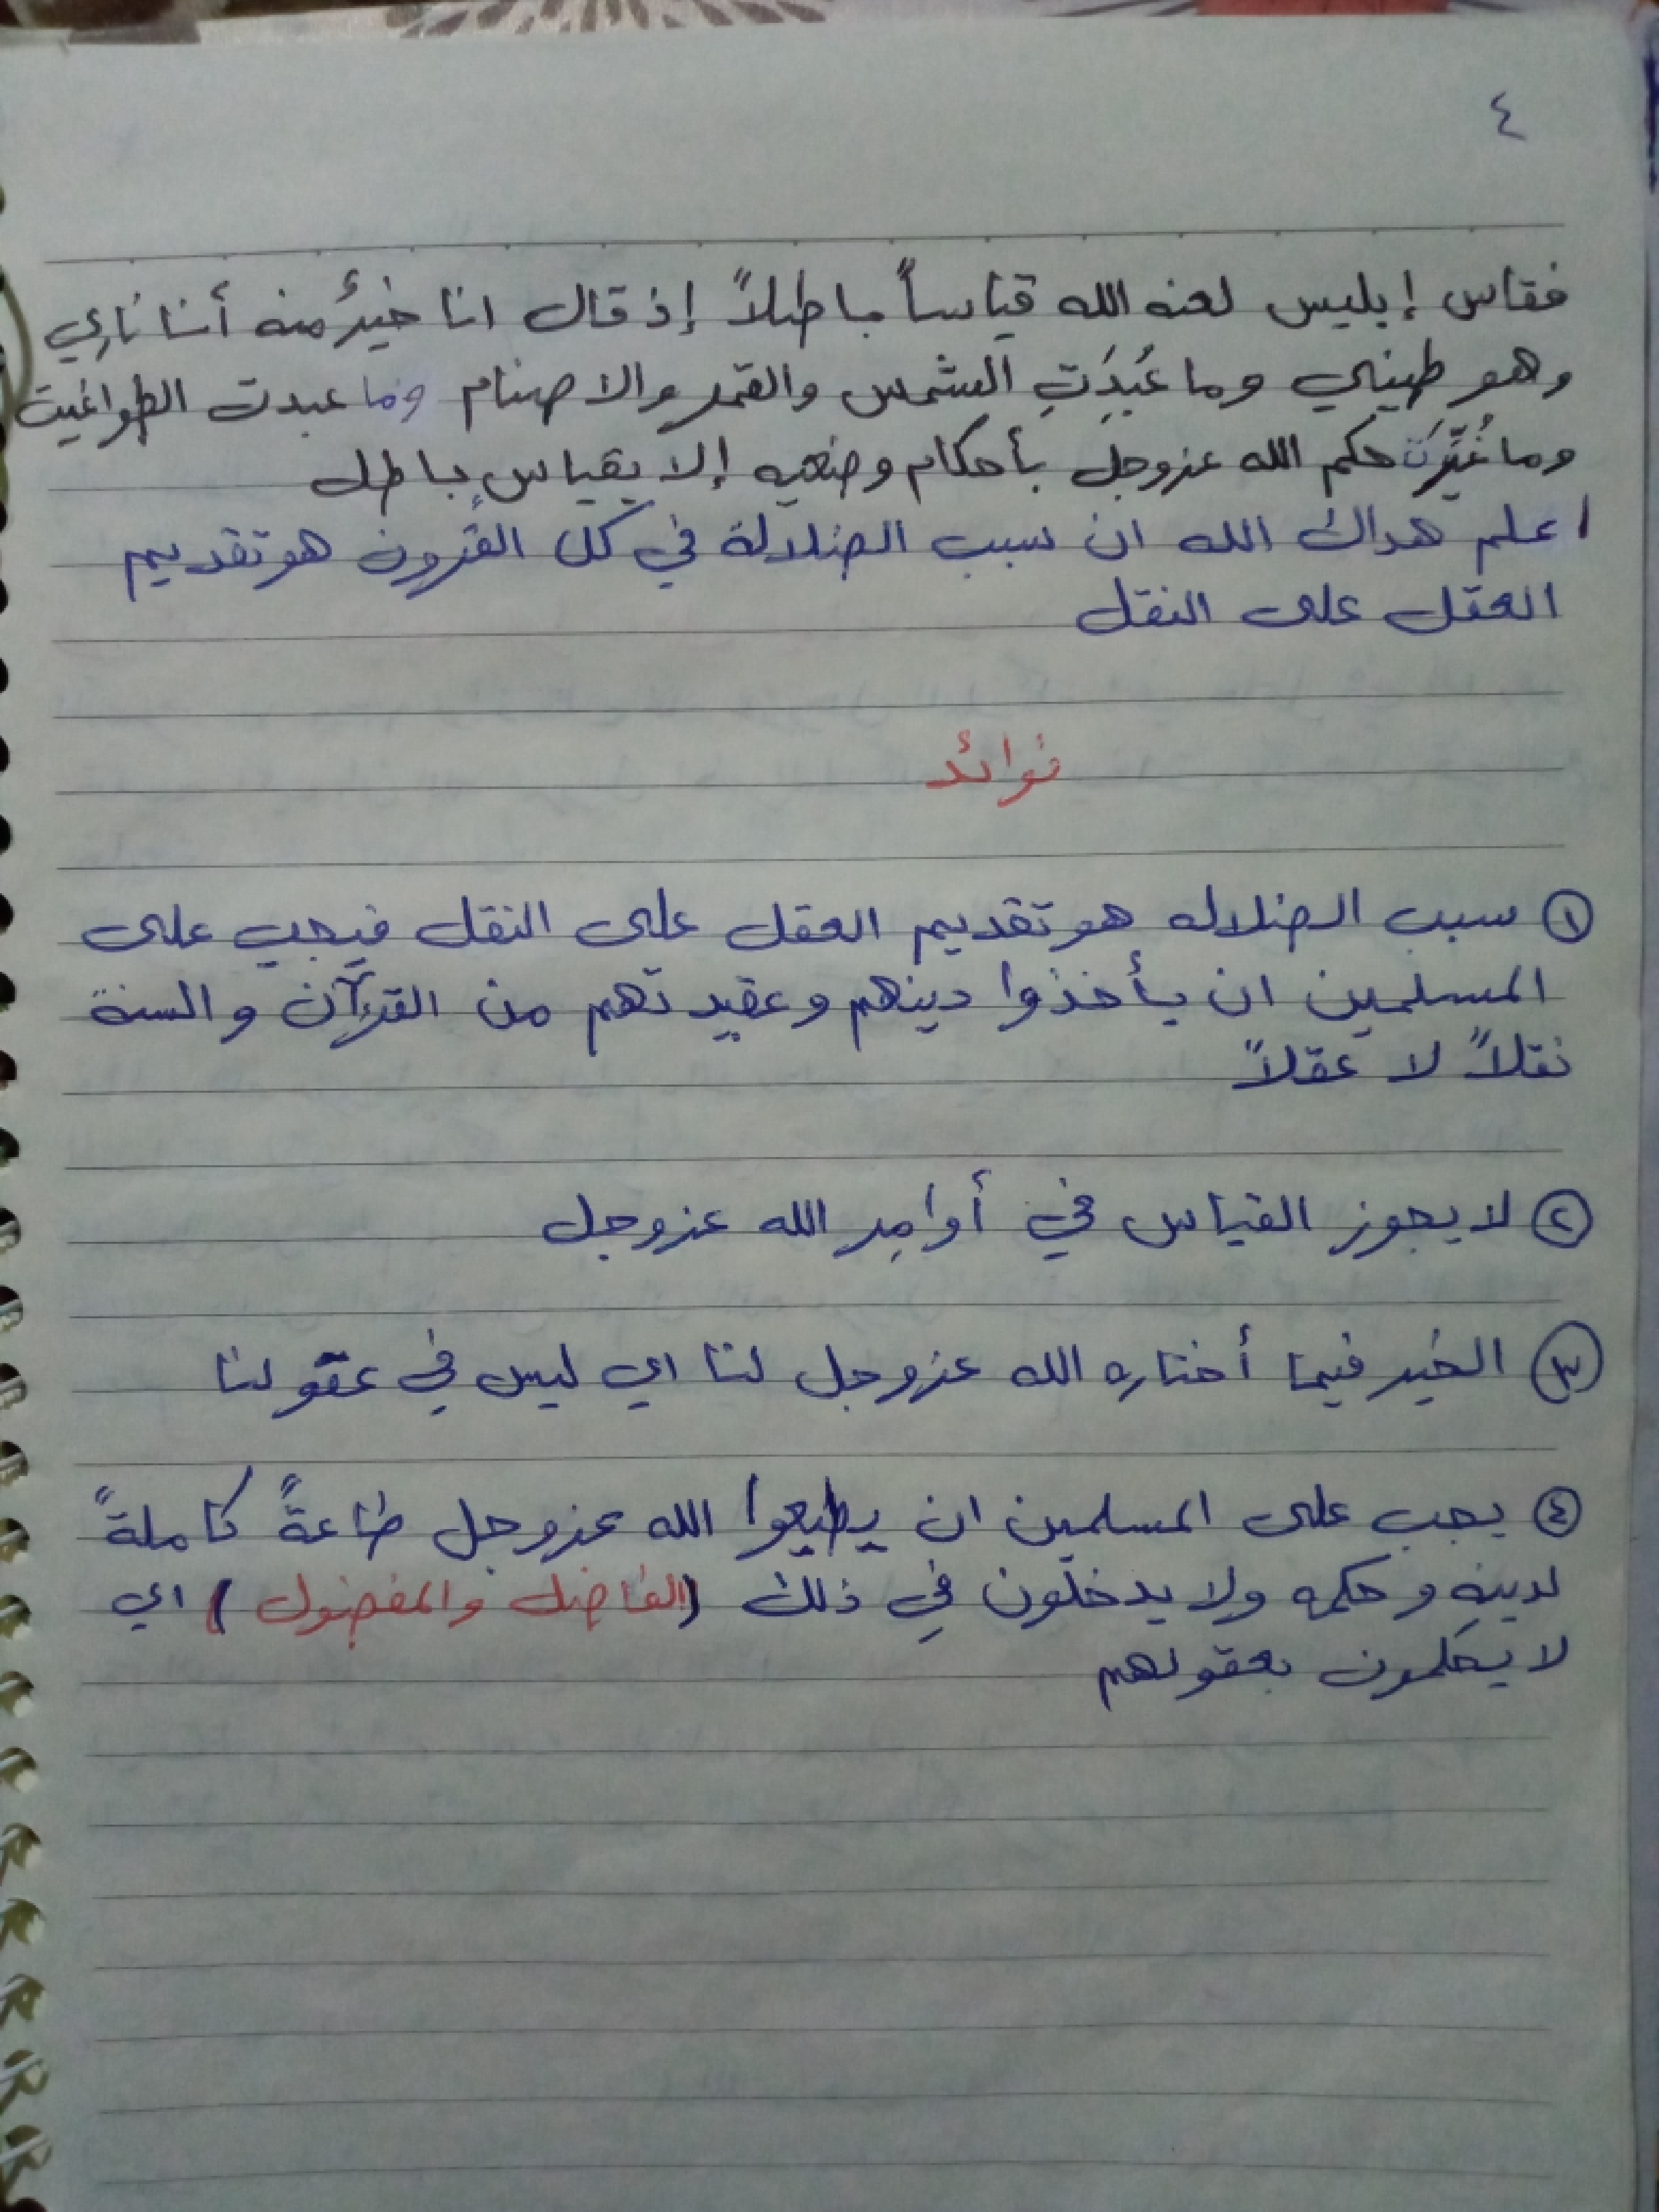 ٤
فقاس إبليس لعنه الله قياساً باطلاً إذ قال انا خيرٌ منه أنا ناري
وهو طيني وما عُبِدَتِ الشمس والقمر والاصنام وما عبدت الطواغيت
وما غُيِّرَت حكم الله عزوجل بأحكام وضعيه إلا بقياسٍ باطل
اعلم هداك الله ان سبب الضلالة في كل القرون هو تقديم
العقل على النقل
فوائد
١ سبب الضلاله هو تقديم العقل على النقل فيجب على
المسلمين ان يأخذوا دينهم وعقيدتهم من القرآن والسنة
نقلاً لا عقلاً
٢ لا يجوز القياس في أوامِر الله عزوجل
٣ الخير فيما أختاره الله عزوجل لنا اي ليس في عقولنا
٤ يجب على المسلمين ان يطيعوا الله عزوجل طاعةً كاملةً
لدينهِ وحكمه ولا يدخلون في ذلك (الفاضل والمفضول) اي
لا يحكمون بعقولهم